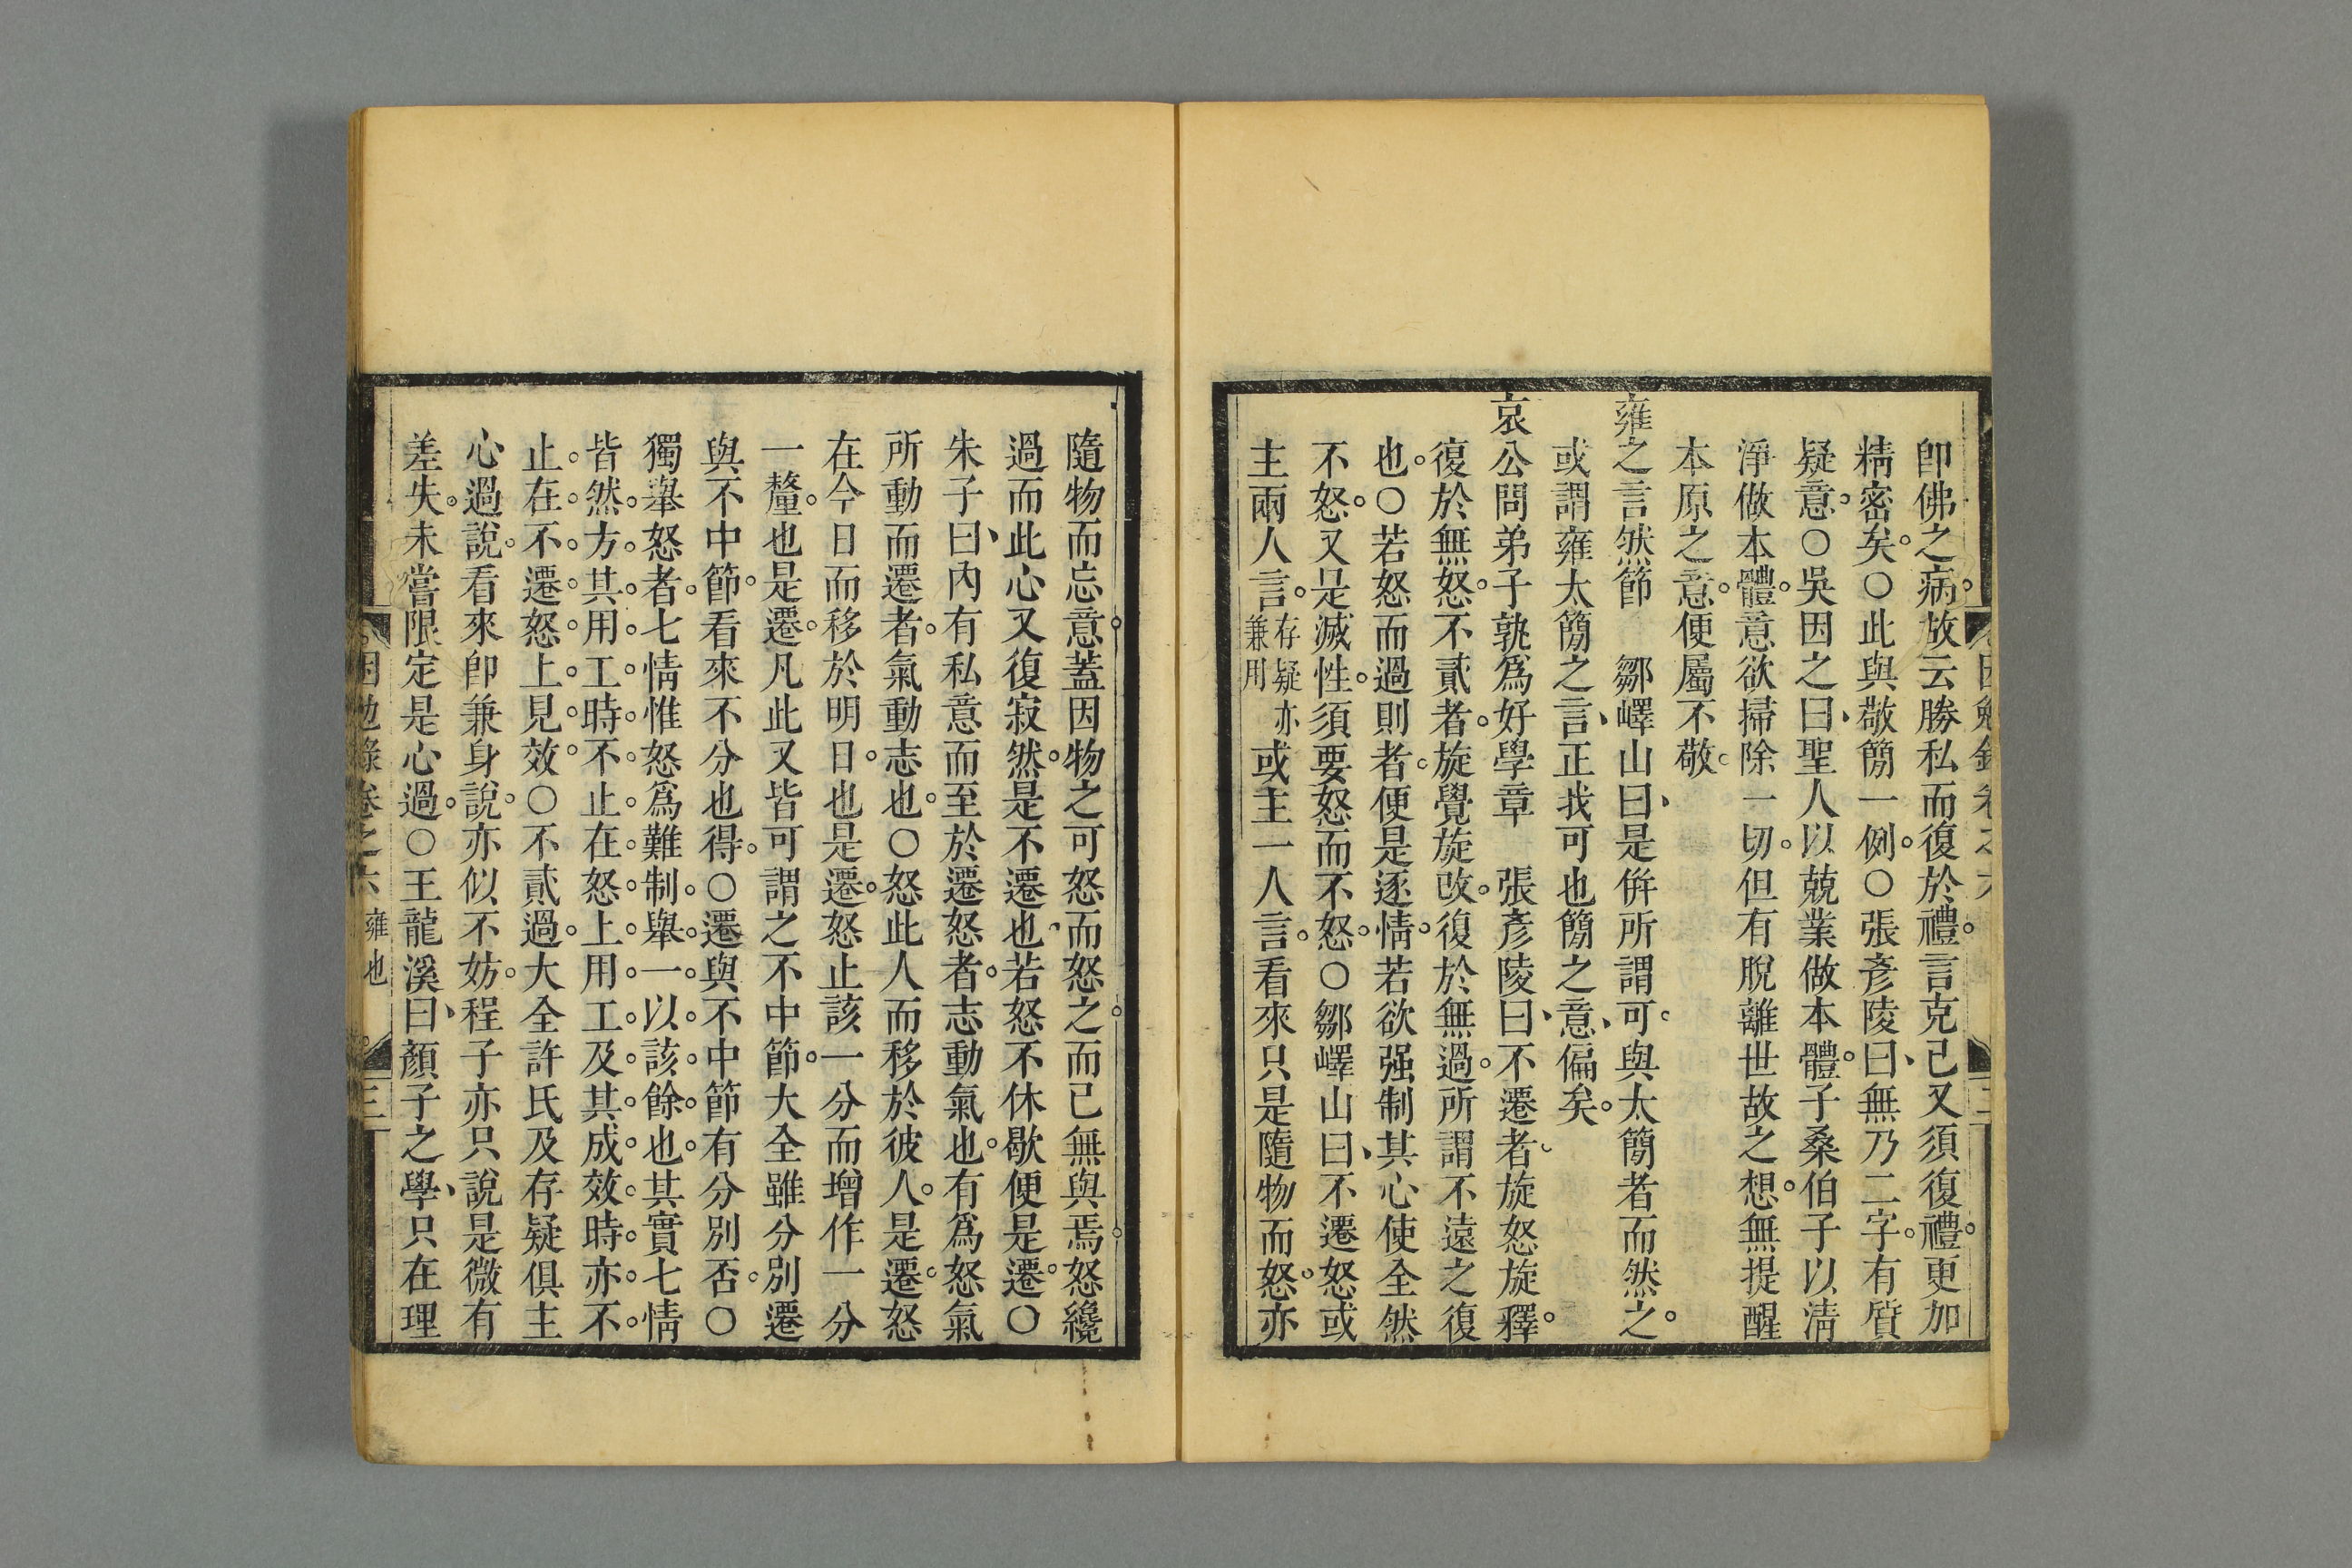 卽佛之病。故云勝私而復於禮。言克己又須復禮。更加
精密矣。○此與敬簡一例。○張彥陵曰、無乃二字。有質
疑意。○吳因之曰、聖人以兢業做本體。子桑伯子以淸
淨做本體。意欲掃除一切。但有脫離世故之想。無提醒
本原之意。便屬不敬。
雍之言然節　鄒嶧山曰、是倂所謂可。與太簡者而然之。
或謂雍太簡之言、正我可也簡之意、偏矣。
哀公問弟子孰爲好學章　張彥陵曰、不遷者。旋怒旋釋。
復於無怒。不貳者。旋覺旋改。復於無過。所謂不遠之復
也。○若怒而過則者。便是逐情。若欲强制其心使全然
不怒。又是滅性。須要怒而不怒。○鄒嶧山曰、不遷怒或
主兩人言。存疑亦兼用或主一人言。看來只是隨物而怒。亦
隨物而忘意。蓋因物之可怒而怒之。而已無與焉。怒纔
過而此心又復寂然。是不遷也、若怒不休歇便是遷。○
朱子曰、內有私意而至於遷怒者。志動氣也。有爲怒氣
所動而遷者。氣動志也。○怒此人而移於彼人。是遷。怒
在今日而移於明日。也是遷。怒止該一分而增作一分
一釐。也是遷。凡此又皆可謂之不中節。大全雖分別遷
與不中節。看來不分也得。○遷與不中節有分別否。○
獨舉怒者。七情惟怒爲難制。舉一以該餘也。其實七情
皆然。方其用工時。不止在怒上用工。及其成效時。亦不
止在不遷怒上見效。○不貳過。大全許氏及存疑俱主
心過說。看來卽兼身說。亦似不妨。程子亦只說是微有
差失。未嘗限定是心過。○王龍溪曰、顏子之學、只在理
困勉錄卷之六　雍也　三